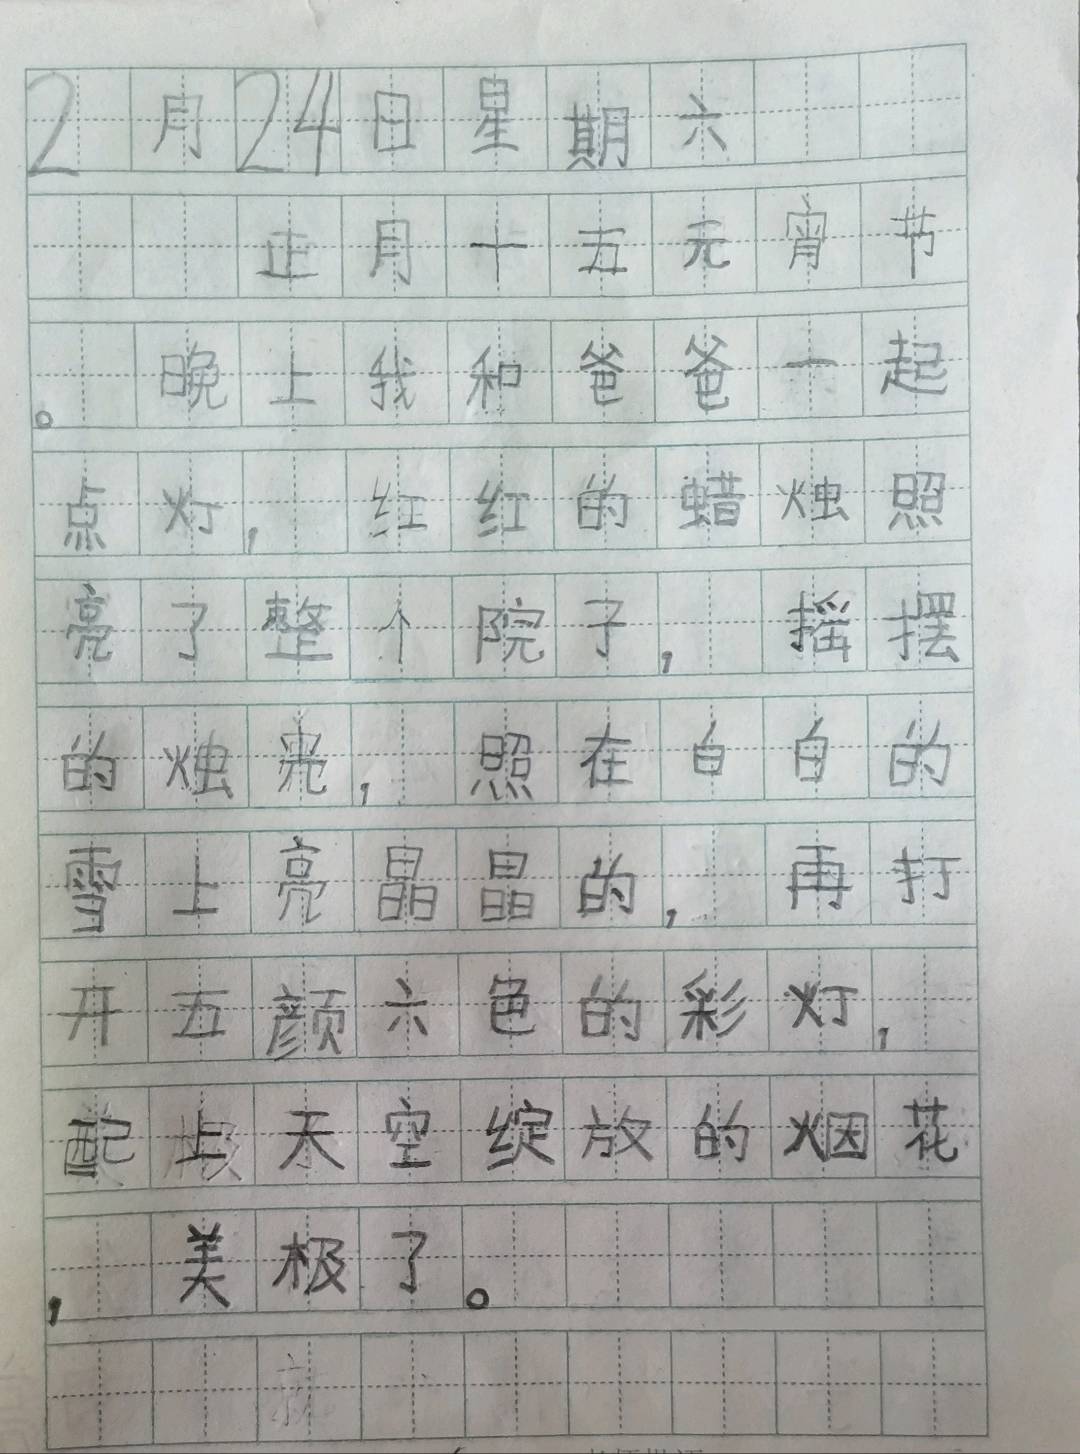 2月24日星期六
正月十五元宵节
。晚上我和爸爸一起
点灯，红红的蜡烛照
亮了整个院子，摇摆
的烛光，照在白白的
雪上亮晶晶的，再打
开五颜六色的彩灯，
配上天空绽放的烟花
，美极了。